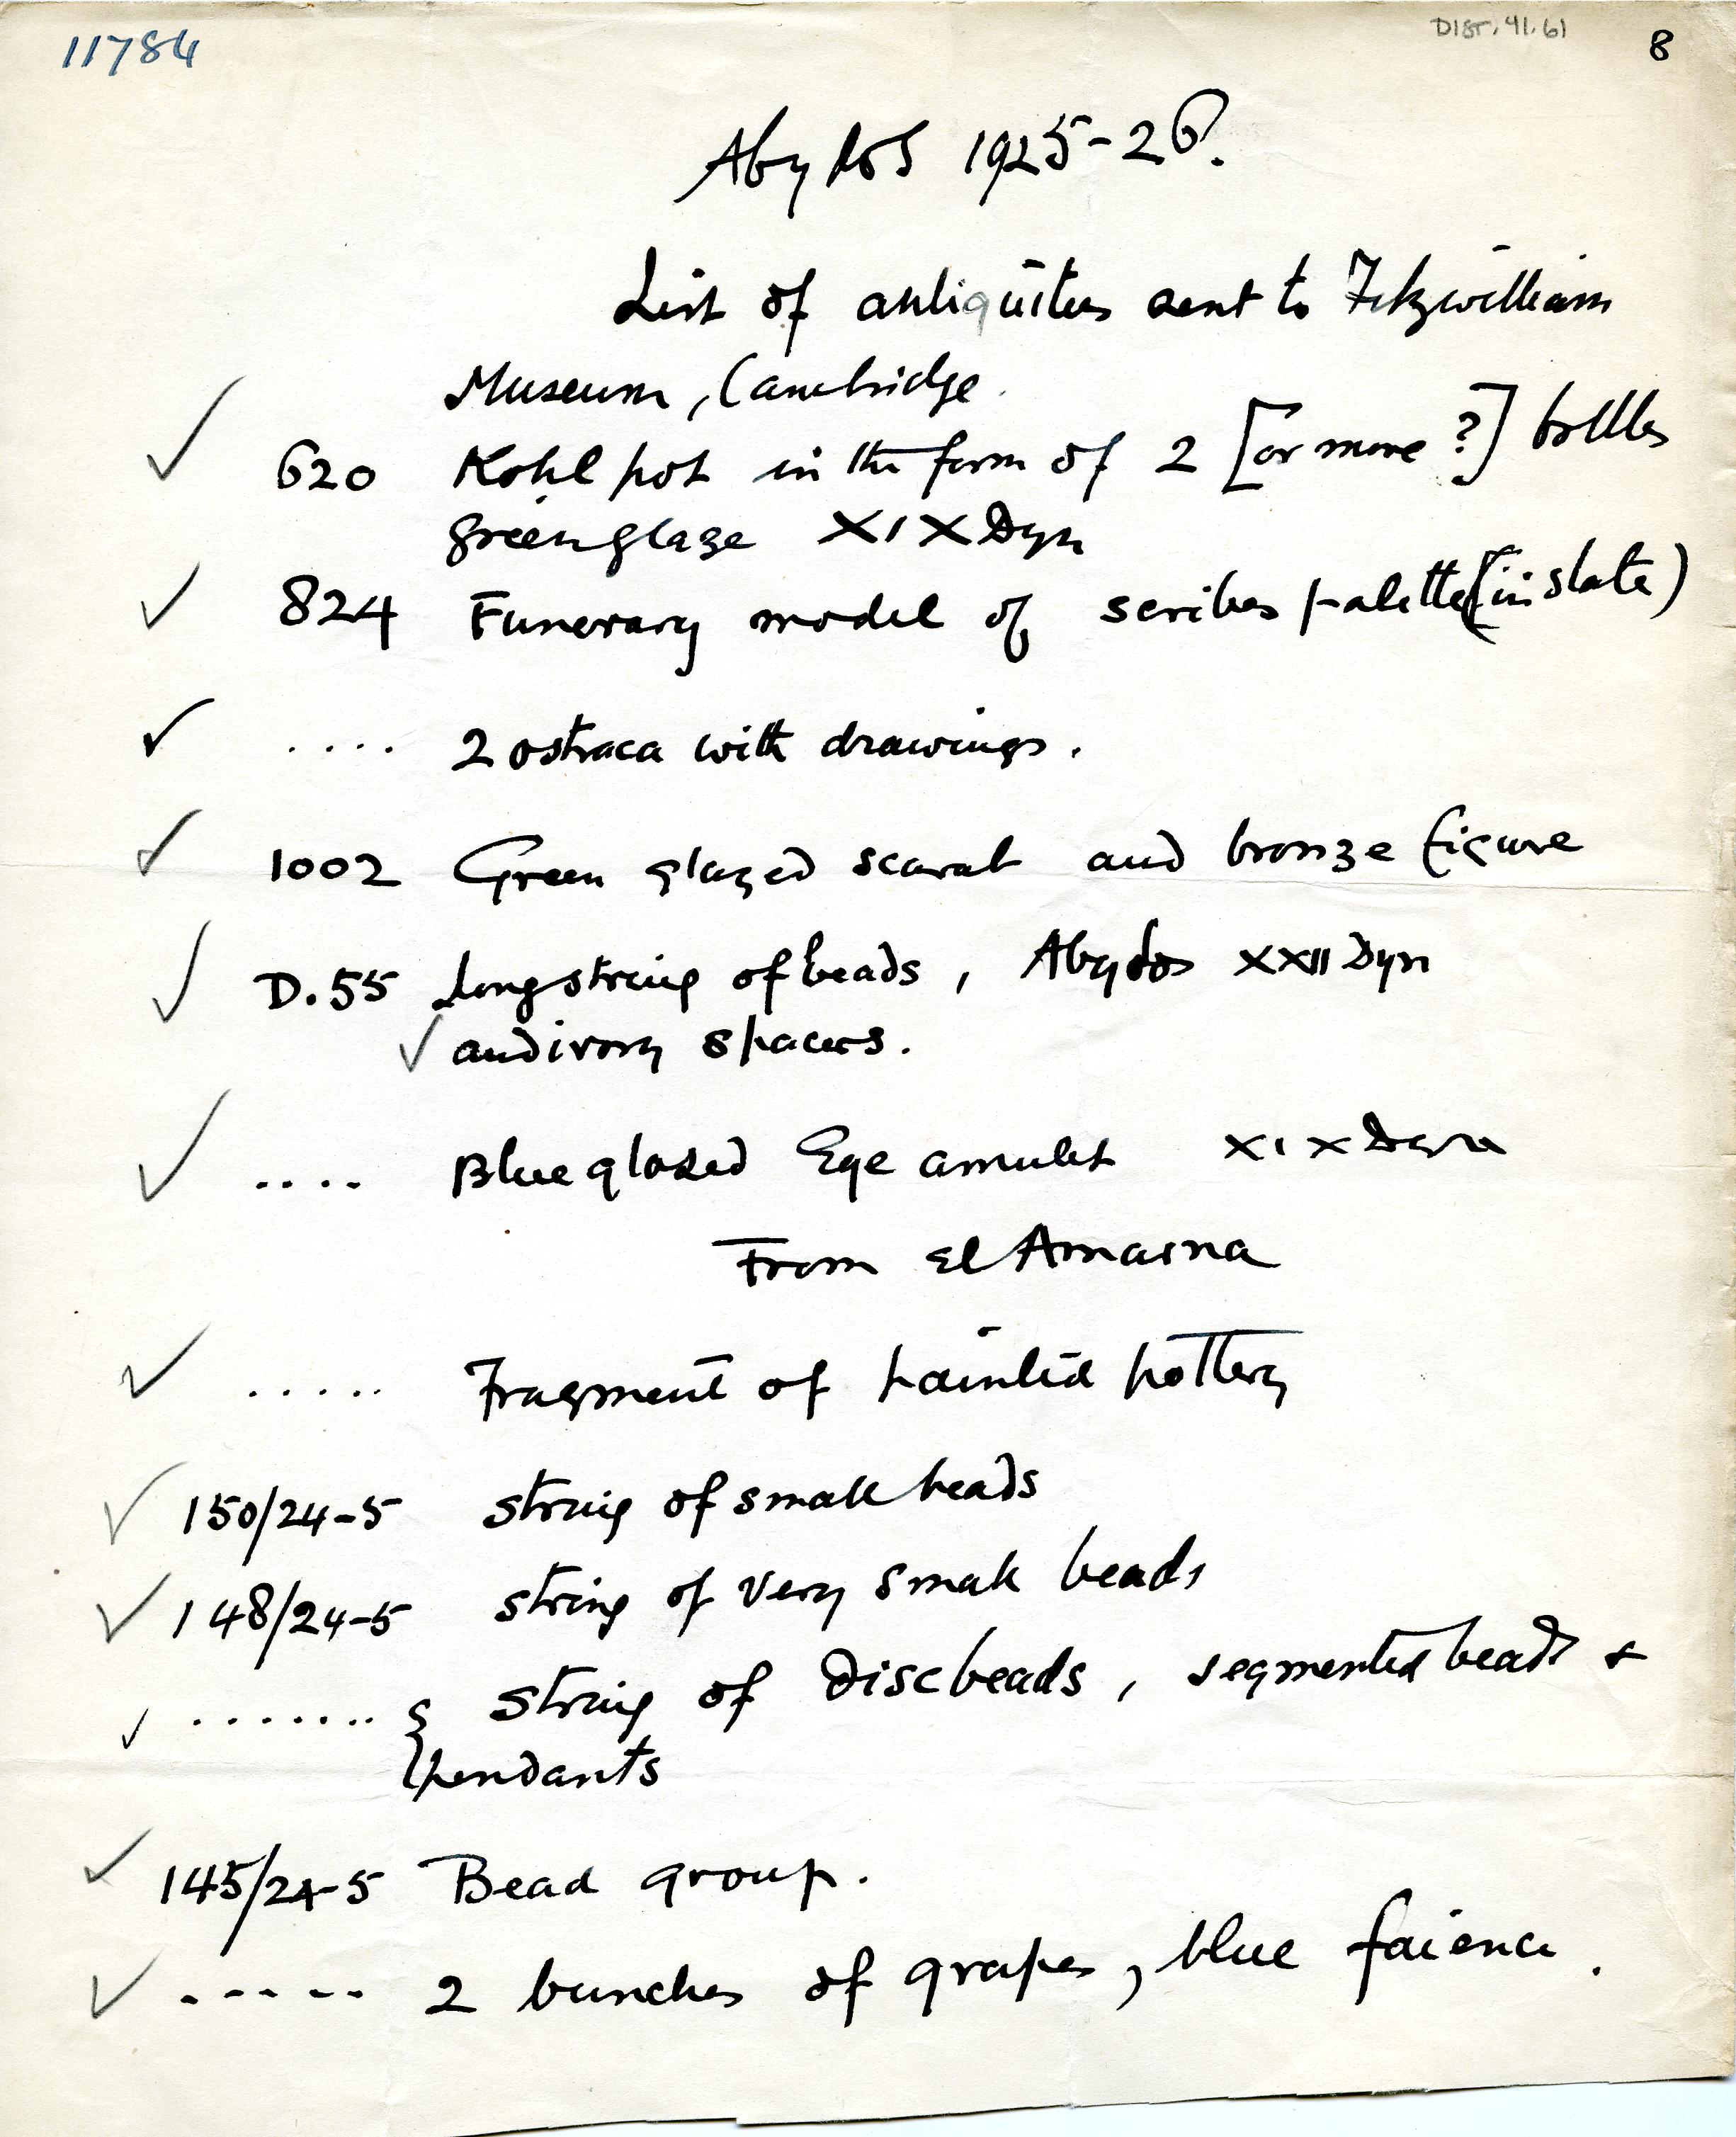 11784
DIST. 41.61
8
Abydos 1925-26.
List of antiquities sent to Fitzwilliam
Museum, Cambridge.
✓ 620 Kohl pot in the form of 2 [or more?] bottles
green glaze XIX Dyn
✓ 824 Funerary model of scribes palette (in slate)
✓ .... 2 ostraca with drawings.
✓ 1002 Green glazed scarab and bronze figure
✓ D.55 Long string of beads, Abydos XXII Dyn
✓ and ivory spacers.
✓ .... Blue glazed Eye amulet XIX Dyn
From El Amarna
✓ ..... Fragment of painted pottery
✓ 150/24-5 string of small beads
✓ 148/24-5 string of very small beads
✓ ....... { string of disc beads, segmented beads &
pendants
✓ 145/24-5 Bead group.
✓ ----- 2 bunches of grapes, blue faience.